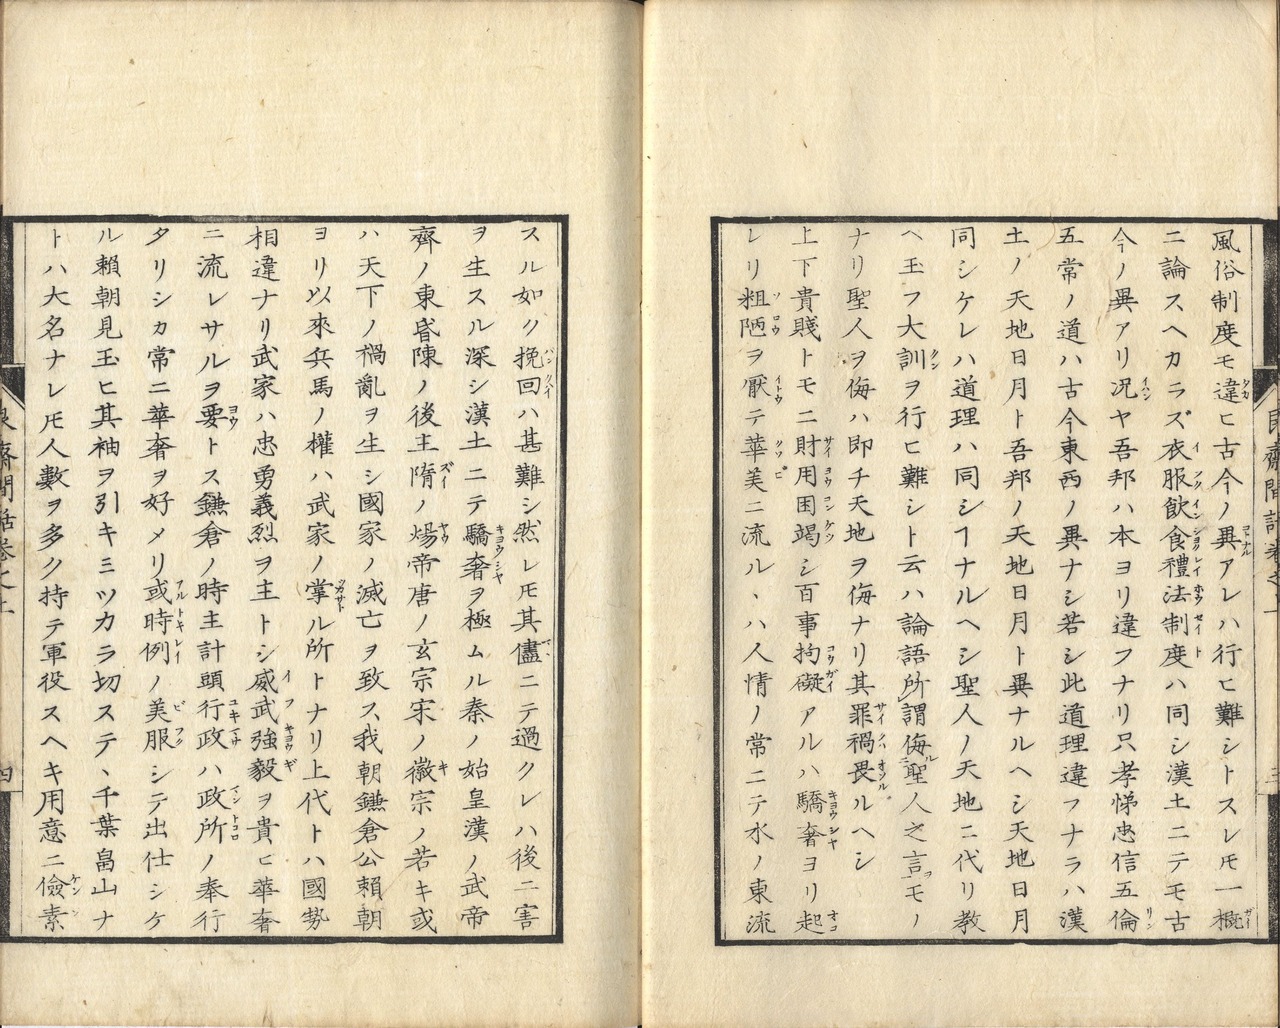 風俗制度モ違ヒ古今ノ異アレハ行ヒ難シトスレ𪜈一概
ニ論スヘカラズ衣服飲食禮法制度ハ同シ漢土ニテモ古
今ノ異アリ况ヤ吾邦ハ本ヨリ違フナリ只孝悌忠信五倫
五常ノ道ハ古今東西ノ異ナシ若シ此道理違フナラハ漢
土ノ天地日月ト吾邦ノ天地日月ト異ナルヘシ天地日月
同シケレハ道理ハ同シヿナルヘシ聖人ノ天地ニ代リ教
ヘ玉フ大訓ヲ行ヒ難シト云ハ論語所謂侮聖人之言モノ
ナリ聖人ヲ侮ハ即チ天地ヲ侮ナリ其罪禍畏ルヘシ
上下貴賤トモニ財用困竭シ百事拘礙アルハ驕奢ヨリ起
レリ粗陋ヲ厭テ華美ニ流ル、ハ人情ノ常ニテ水ノ東流
スル如ク挽回ハ甚難シ然レ𪜈其儘ニテ過クレハ後ニ害
ヲ生スル深シ漢土ニテ驕奢ヲ極ムル秦ノ始皇漢ノ武帝
齊ノ東昏陳ノ後主隋ノ煬帝唐ノ玄宗宋ノ徽宗ノ若キ或
ハ天下ノ禍亂ヲ生シ國家ノ滅亡ヲ致ス我朝鎌倉公賴朝
ヨリ以來兵馬ノ權ハ武家ノ掌ル所トナリ上代トハ國勢
相違ナリ武家ハ忠勇義烈ヲ主トシ威武強毅ヲ貴ヒ華奢
ニ流レサルヲ要トス鎌倉ノ時主計頭行政ハ政所ノ奉行
タリシカ常ニ華奢ヲ好メリ或時例ノ美服シテ出仕シケ
ル賴朝見玉ヒ其袖ヲ引キミツカラ切ステ、千葉畠山ナ
トハ大名ナレ𪜈人數ヲ多ク持テ軍役スヘキ用意ニ儉素